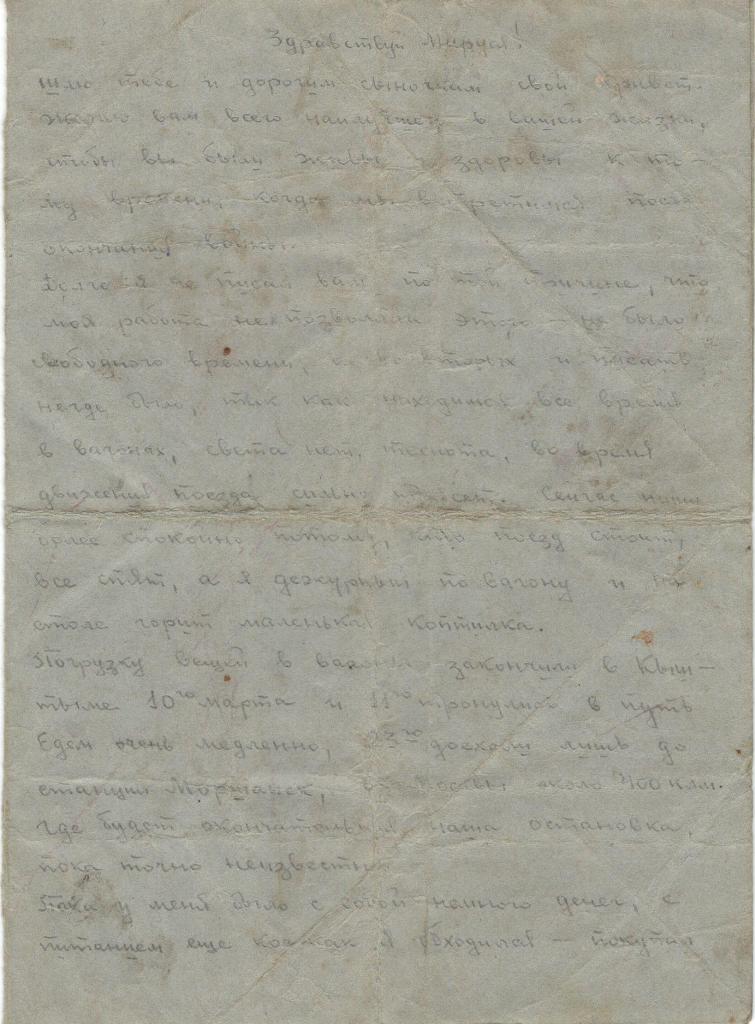 Здравствуй Маруся!
Шлю тебе и дорогим сыночкам свой привет.
Желаю вам всего наилучшего в вашей жизни,
чтобы вы были живы и здоровы к то-
му времени, когда мы встретимся после
окончания войны.
Долго я не писал вам по той причине, что
моя работа не позволяла этого – не было
свободного времени, а во вторых и писать
негде было, так как находимся все время
в вагонах, света нет, теснота, во время
движения поезда сильно трясет. Сейчас
более спокойно потому, что поезд стоит,
все спят, а я дежурный по вагону и на
столе горит маленькая коптилка.
Погрузку вещей в вагоны закончили в Кыш-
тыме 10го марта и 11го тронулись в путь
Едем очень медленно, 23го доехали лишь до
станции Моршанск, от Москвы около 400 клм.
где будет окончательная наша остановка,
пока точно неизвестно.
Пока у меня было с собой немного денег, с
питанием еще кое как я обходился – покупал